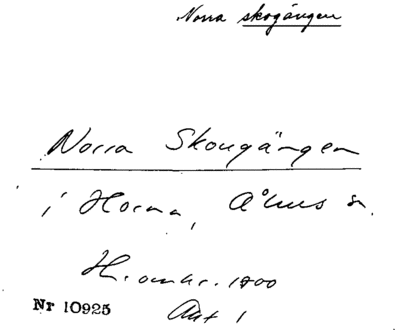 Norra skogången
Norra Skougången
i Horna, Åhus sn.
H. omkr. 1700
Nr 10925
Akt 1